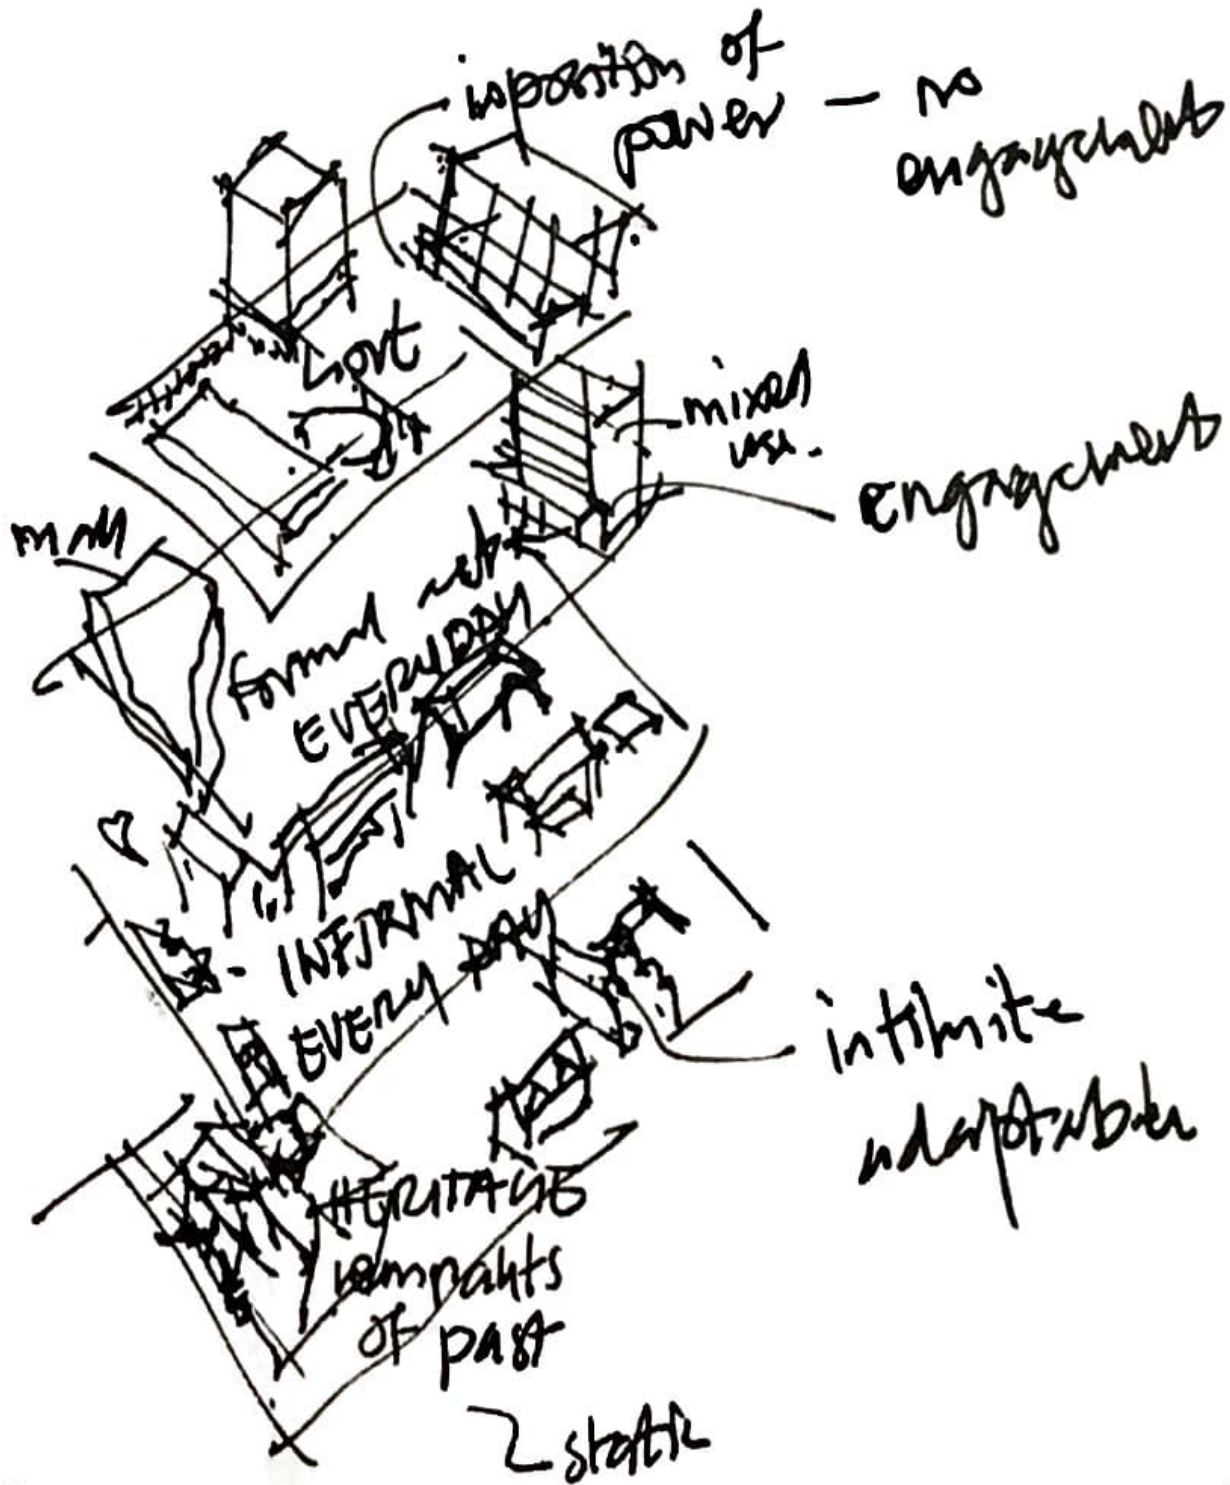 imposition of
power — no
engagement
Govt
mixed
use.
engagement
mall
formal
EVERYDAY
- INFORMAL
EVERYDAY
intimate
adaptable
HERITAGE
remnants
of past
static